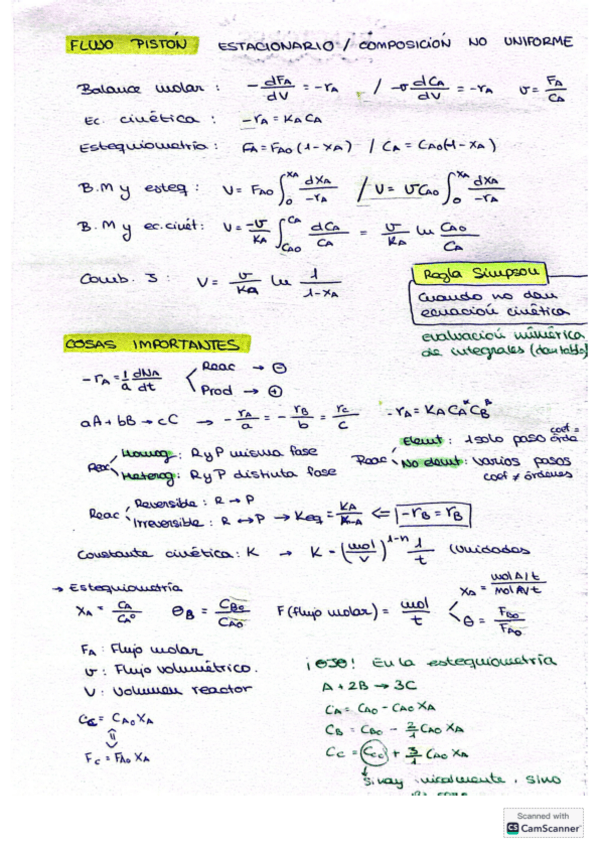 FLUJO PISTÓN ESTACIONARIO / COMPOSICIÓN NO UNIFORME
Balance molar : -dFA/dV = -rA / -υ dCA/dV = -rA υ = FA/CA
Ec. cinética : -rA = KA CA
Estequiometría : FA = FAO (1-XA) / CA = CAO(1-XA)
B.M y esteq : V = FAO ∫₀^XA dXA/-rA / V = υCAO ∫₀^XA dXA/-rA
B.M y ec.cinét: V = -υ/KA ∫CAO^CA dCA/CA = υ/KA ln CAO/CA
Comb. 3 : V = υ/KA ln 1/1-XA
Regla Simpson
Cuando no dan
ecuación cinética
evaluación numérica
de integrales (dan tabla)
COSAS IMPORTANTES
-rA = 1/a dNA/dt
Reac → ⊖
Prod → ⊕
aA + bB → cC → -rA/a = -rB/b = rC/c -rA = KA CA^α CB^β
Reac Homog: R y P misma fase
Heterog: R y P distinta fase
Reac Element : 1 solo paso coef = orden
No elemt: varios pasos
coef ≠ órdenes
Reac Reversible : R → P
Irreversible : R ↔ P → Keq = KA/K-A ⇐ -rB = rB
Constante cinética : K → K = (mol/V)^1-n 1/t (Unidades
→ Estequiometría
XA = CA/CA° ΘB = CBO/CAO F (flujo molar) = mol/t
XA = mol A/t / mol A/t
Θ = FBO/FAO
FA : Flujo molar
υ : Flujo volumétrico.
V : Volumen reactor
CC = CAO XA
⇕
FC = FAO XA
¡OJO! En la estequiometría
A + 2B → 3C
CA = CAO - CAO XA
CB = CBO - 2/1 CAO XA
CC = CCO + 3/1 CAO XA
si hay inicialmente, sino
Scanned with
CS CamScanner